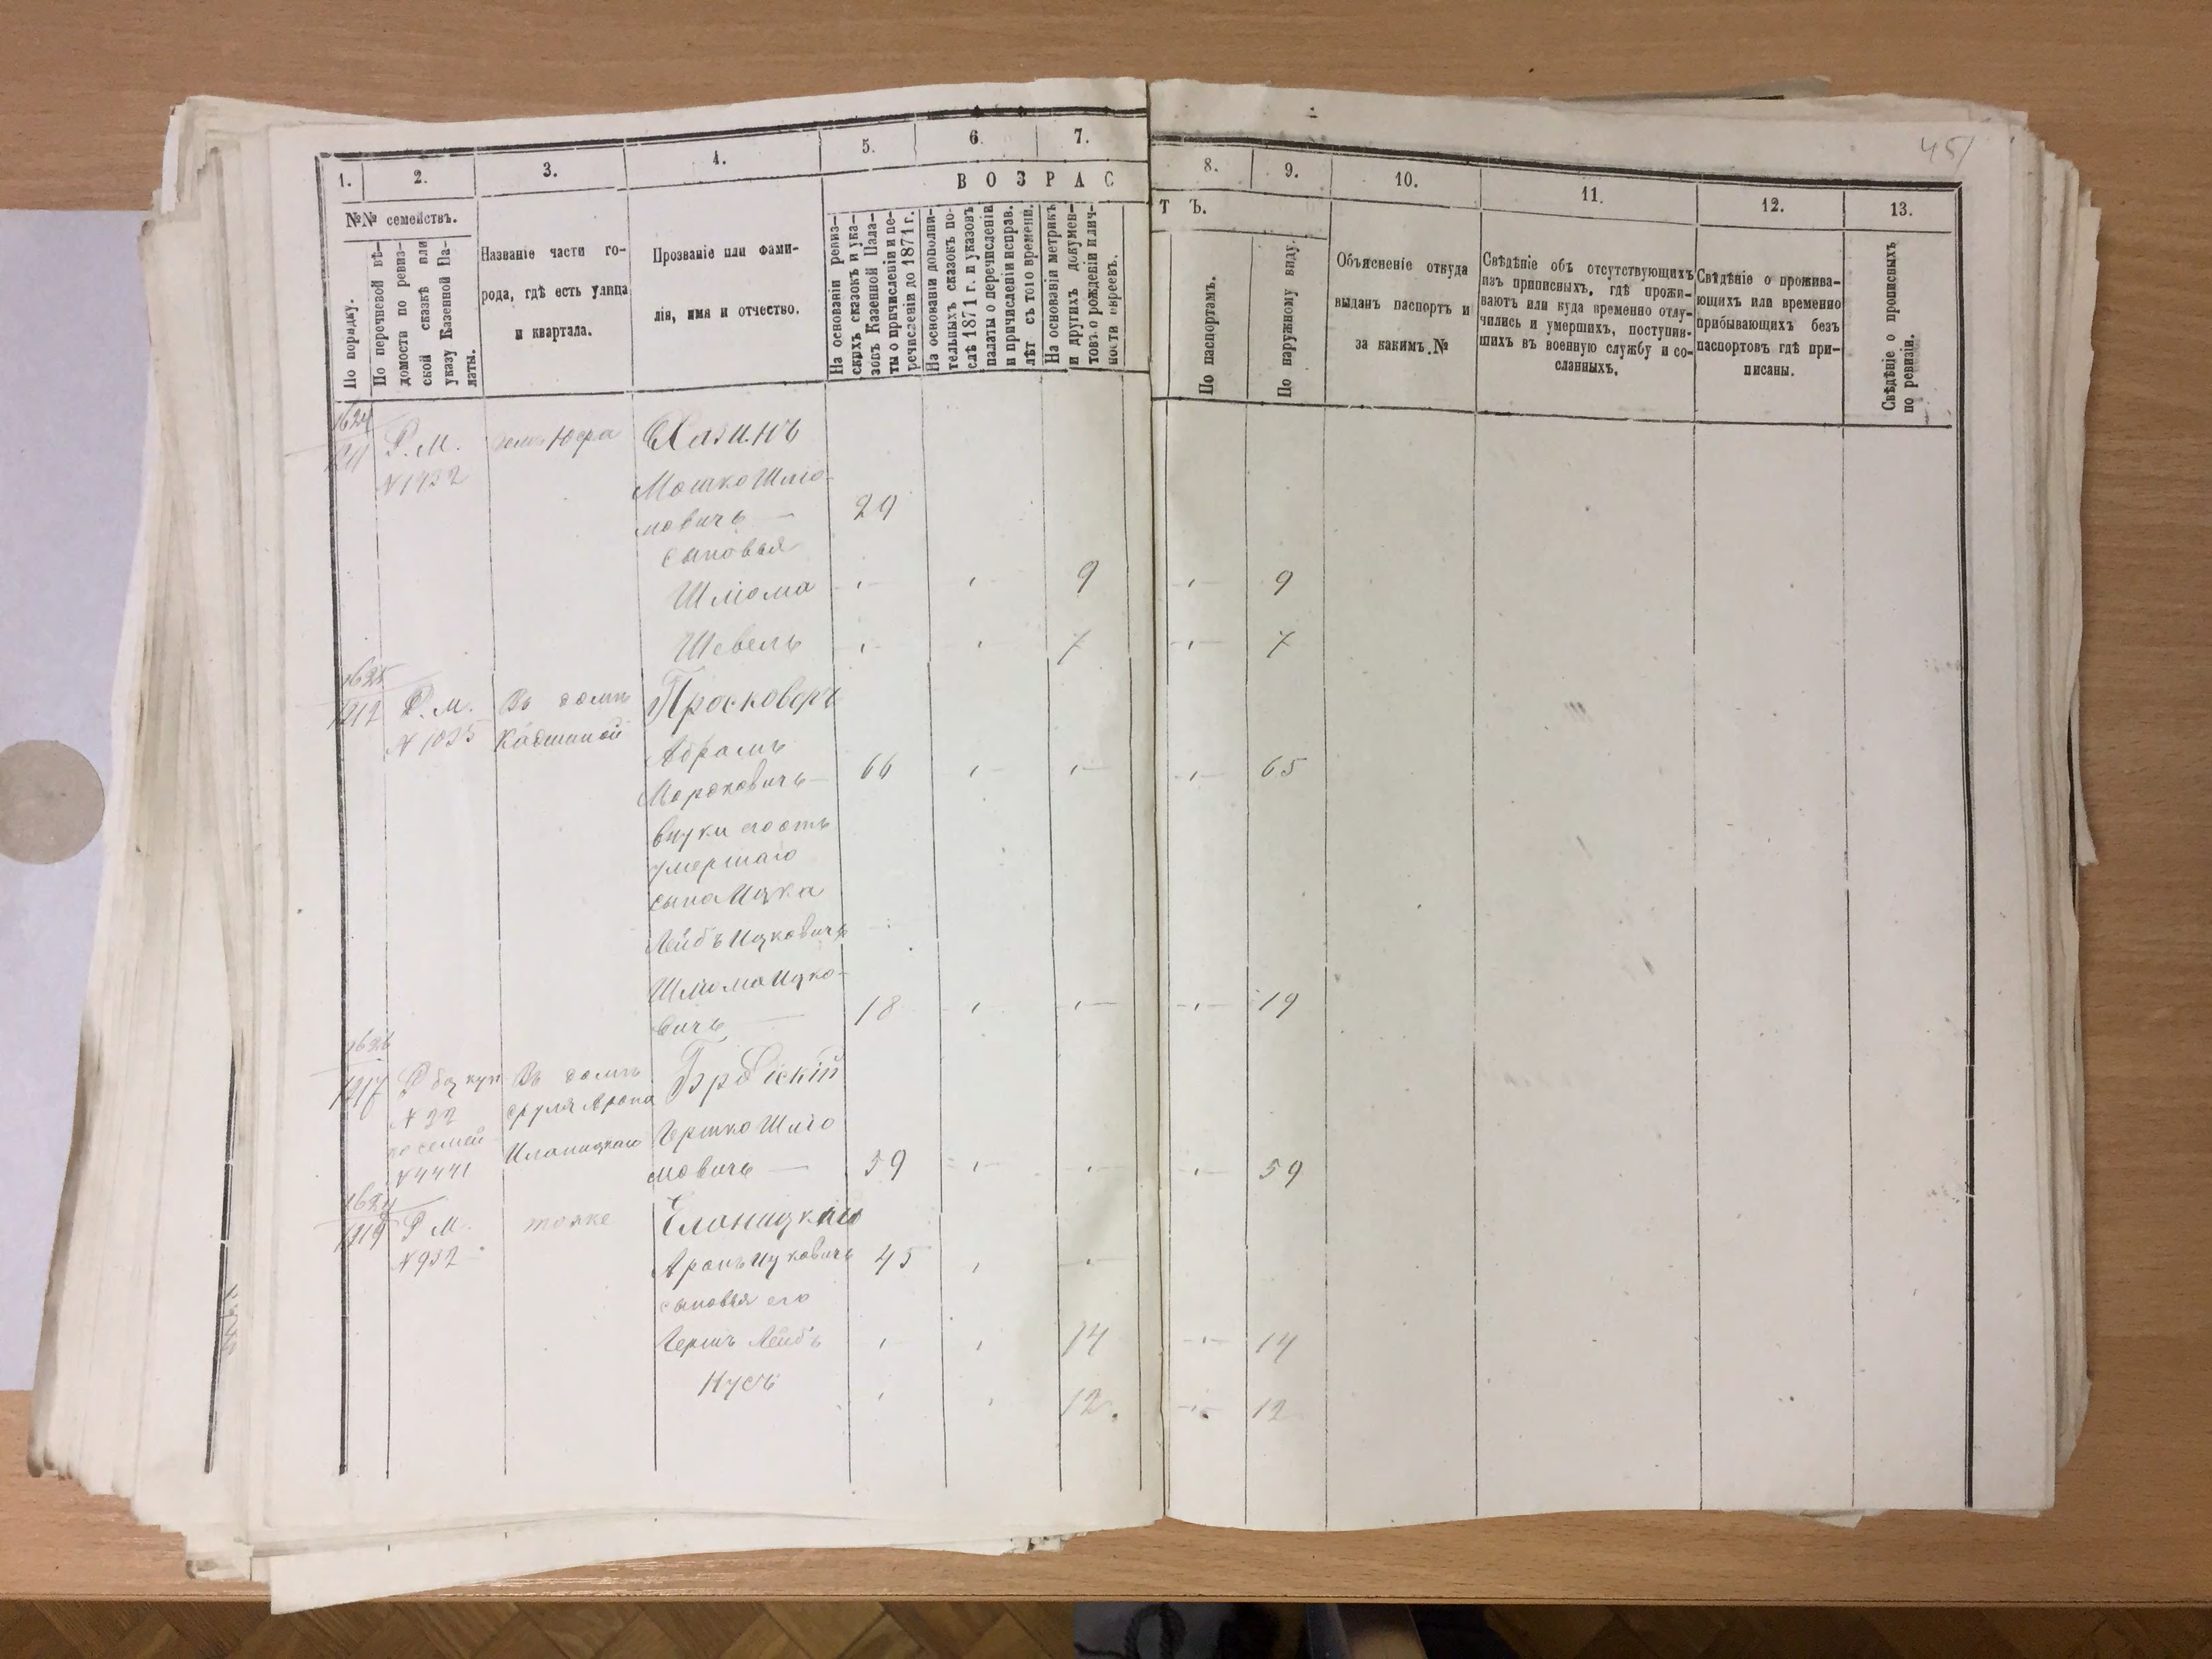 451
1. 2. 3. 4. 5. 6. 7. 8. 9. 10. 11. 12. 13.
ВОЗРАСТЪ.
№№ семействъ.
По порядку.
По перечневой вѣ-
домости по ревиз-
ской сказкѣ или
указу Казенной Па-
латы.
Названіе части го-
рода, гдѣ есть улица
и квартала.
Прозваніе или фами-
лія, имя и отчество.
На основаніи ревиз-
скихъ сказокъ и ука-
зовъ Казенной Пала-
ты о причисленіи и пе-
речисленіи до 1871 г.
На основаніи дополни-
тельныхъ сказокъ по-
слѣ 1871 г. и указовъ
палаты о перечисленіи
и причисленіи исправ.
лѣт съ того времени.
На основаніи метрикъ
и другихъ докумен-
товъ о рожденіи и лич-
ности евреевъ.
По паспортамъ.
По наружному виду.
Объясненіе откуда
выданъ паспортъ и
за какимъ №
Свѣдѣніе объ отсутствующихъ
изъ приписныхъ, гдѣ прожи-
ваютъ или куда временно отлу-
чились и умершихъ, поступив-
шихъ въ военную службу и со-
сланныхъ.
Свѣдѣніе о прожива-
ющихъ или временно
прибывающихъ безъ
паспортовъ гдѣ при-
писаны.
Свѣдѣніе о прописныхъ
по ревизіи.
1624
Р. М. Хазинъ
№ 1932 Мошко Шліо-
мовичъ — 29
сыновья
Шліома 9 9
Шевель 7 7
1625
1212 Р. М. Въ домѣ Просковеръ
Абрамъ
Мордковичъ — 66 65
внуки его отъ
умершаго
сына Ицка
Лейбъ Ицковичъ
Шліома Ицко-
вичъ — 18 19
1626
1217 Въ домѣ Бродскій
№ 22 Сруля Арона
Гершко Шліо
№ 4441 мовичъ — 59 59
1219 Р. М. тоже Еланицкій
№ 932 Аронъ Ицковичъ 45
сыновья его
Гершъ Лейбъ 14 14
Нусъ 12 12